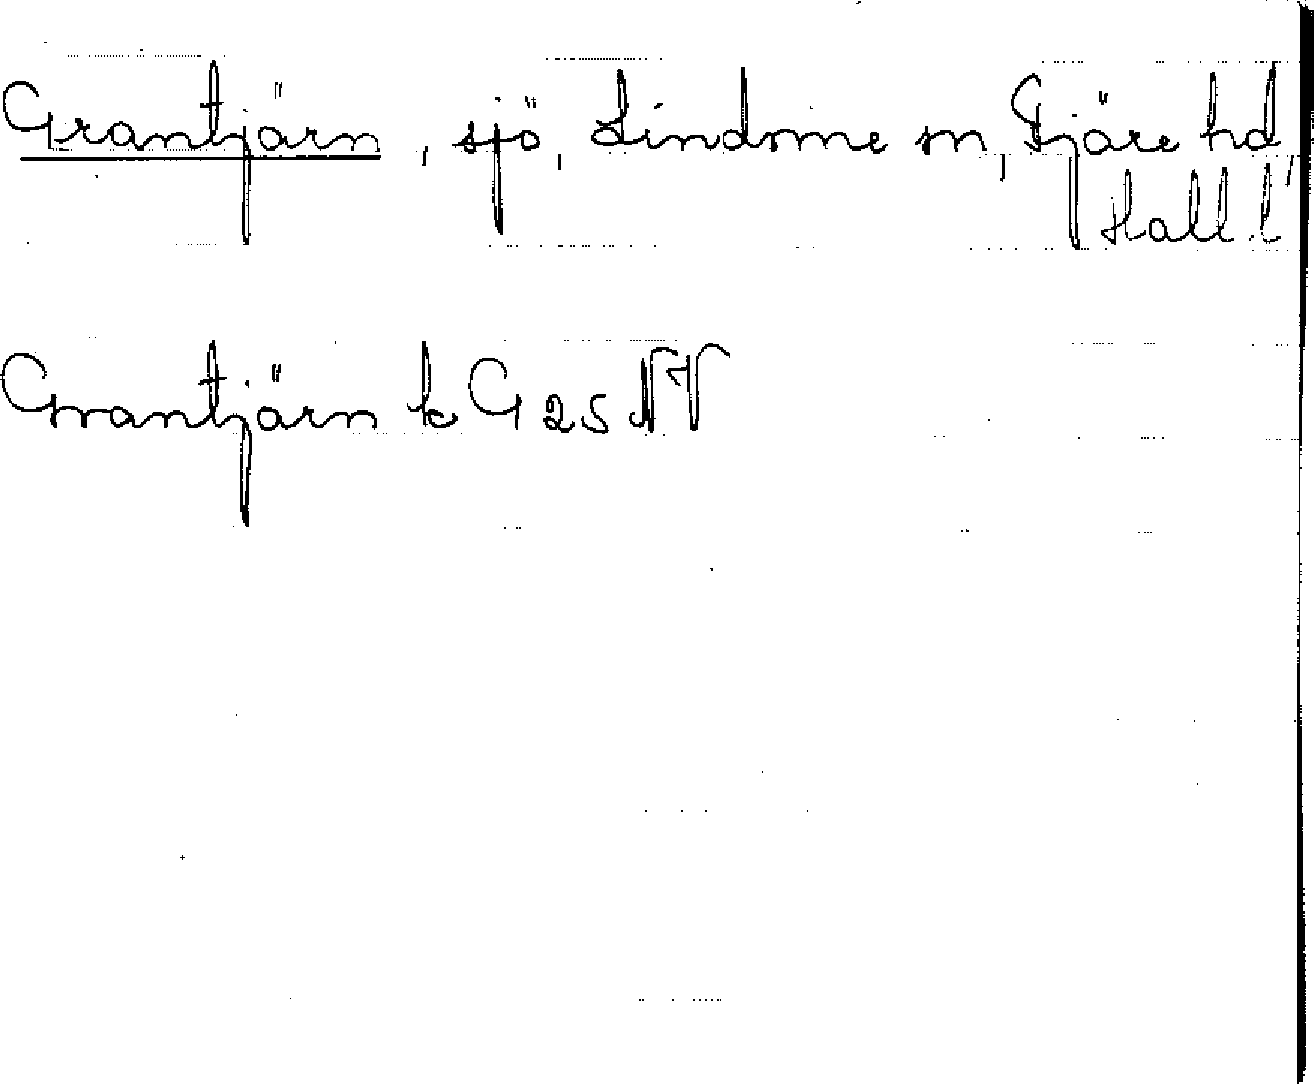 Grantjärn, sjö, Lindome sn, Fjäre hd,
Hall. l
Grantjärn k G 25 NV